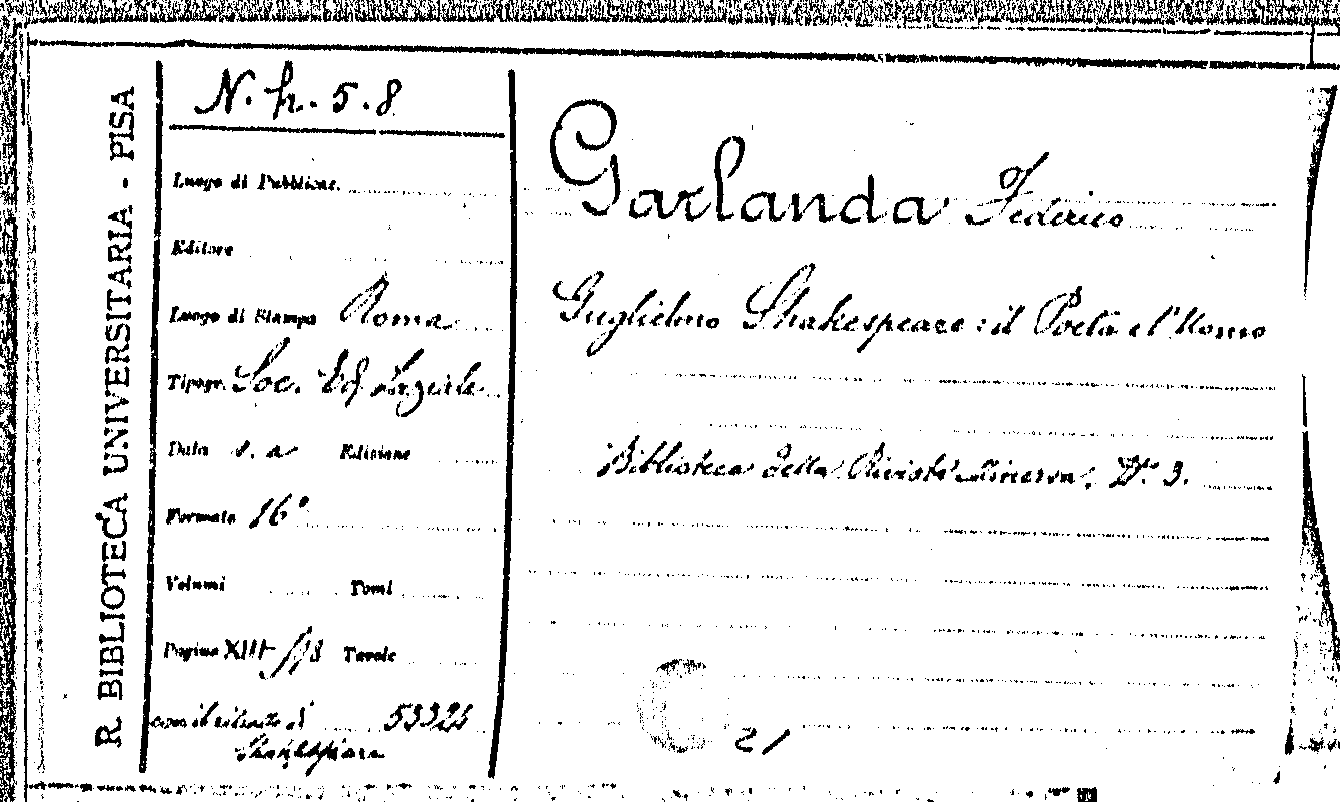 R. BIBLIOTECA UNIVERSITARIA - PISA
N. h. 5. 8
Luogo di Pubblicne.
Editore
Luogo di Stampa Roma
Tipogr. Soc. Ed. Laziale
Data s. a Edizione
Formato 16°
Volumi Tomi
Pagine XIII- Tavole
con il ritratto di 53325
Shakespeare
Garlanda Federico
Guglielmo Shakespeare: il Poeta e l'Uomo
Biblioteca della Rivista Minerva, N. 3.
21